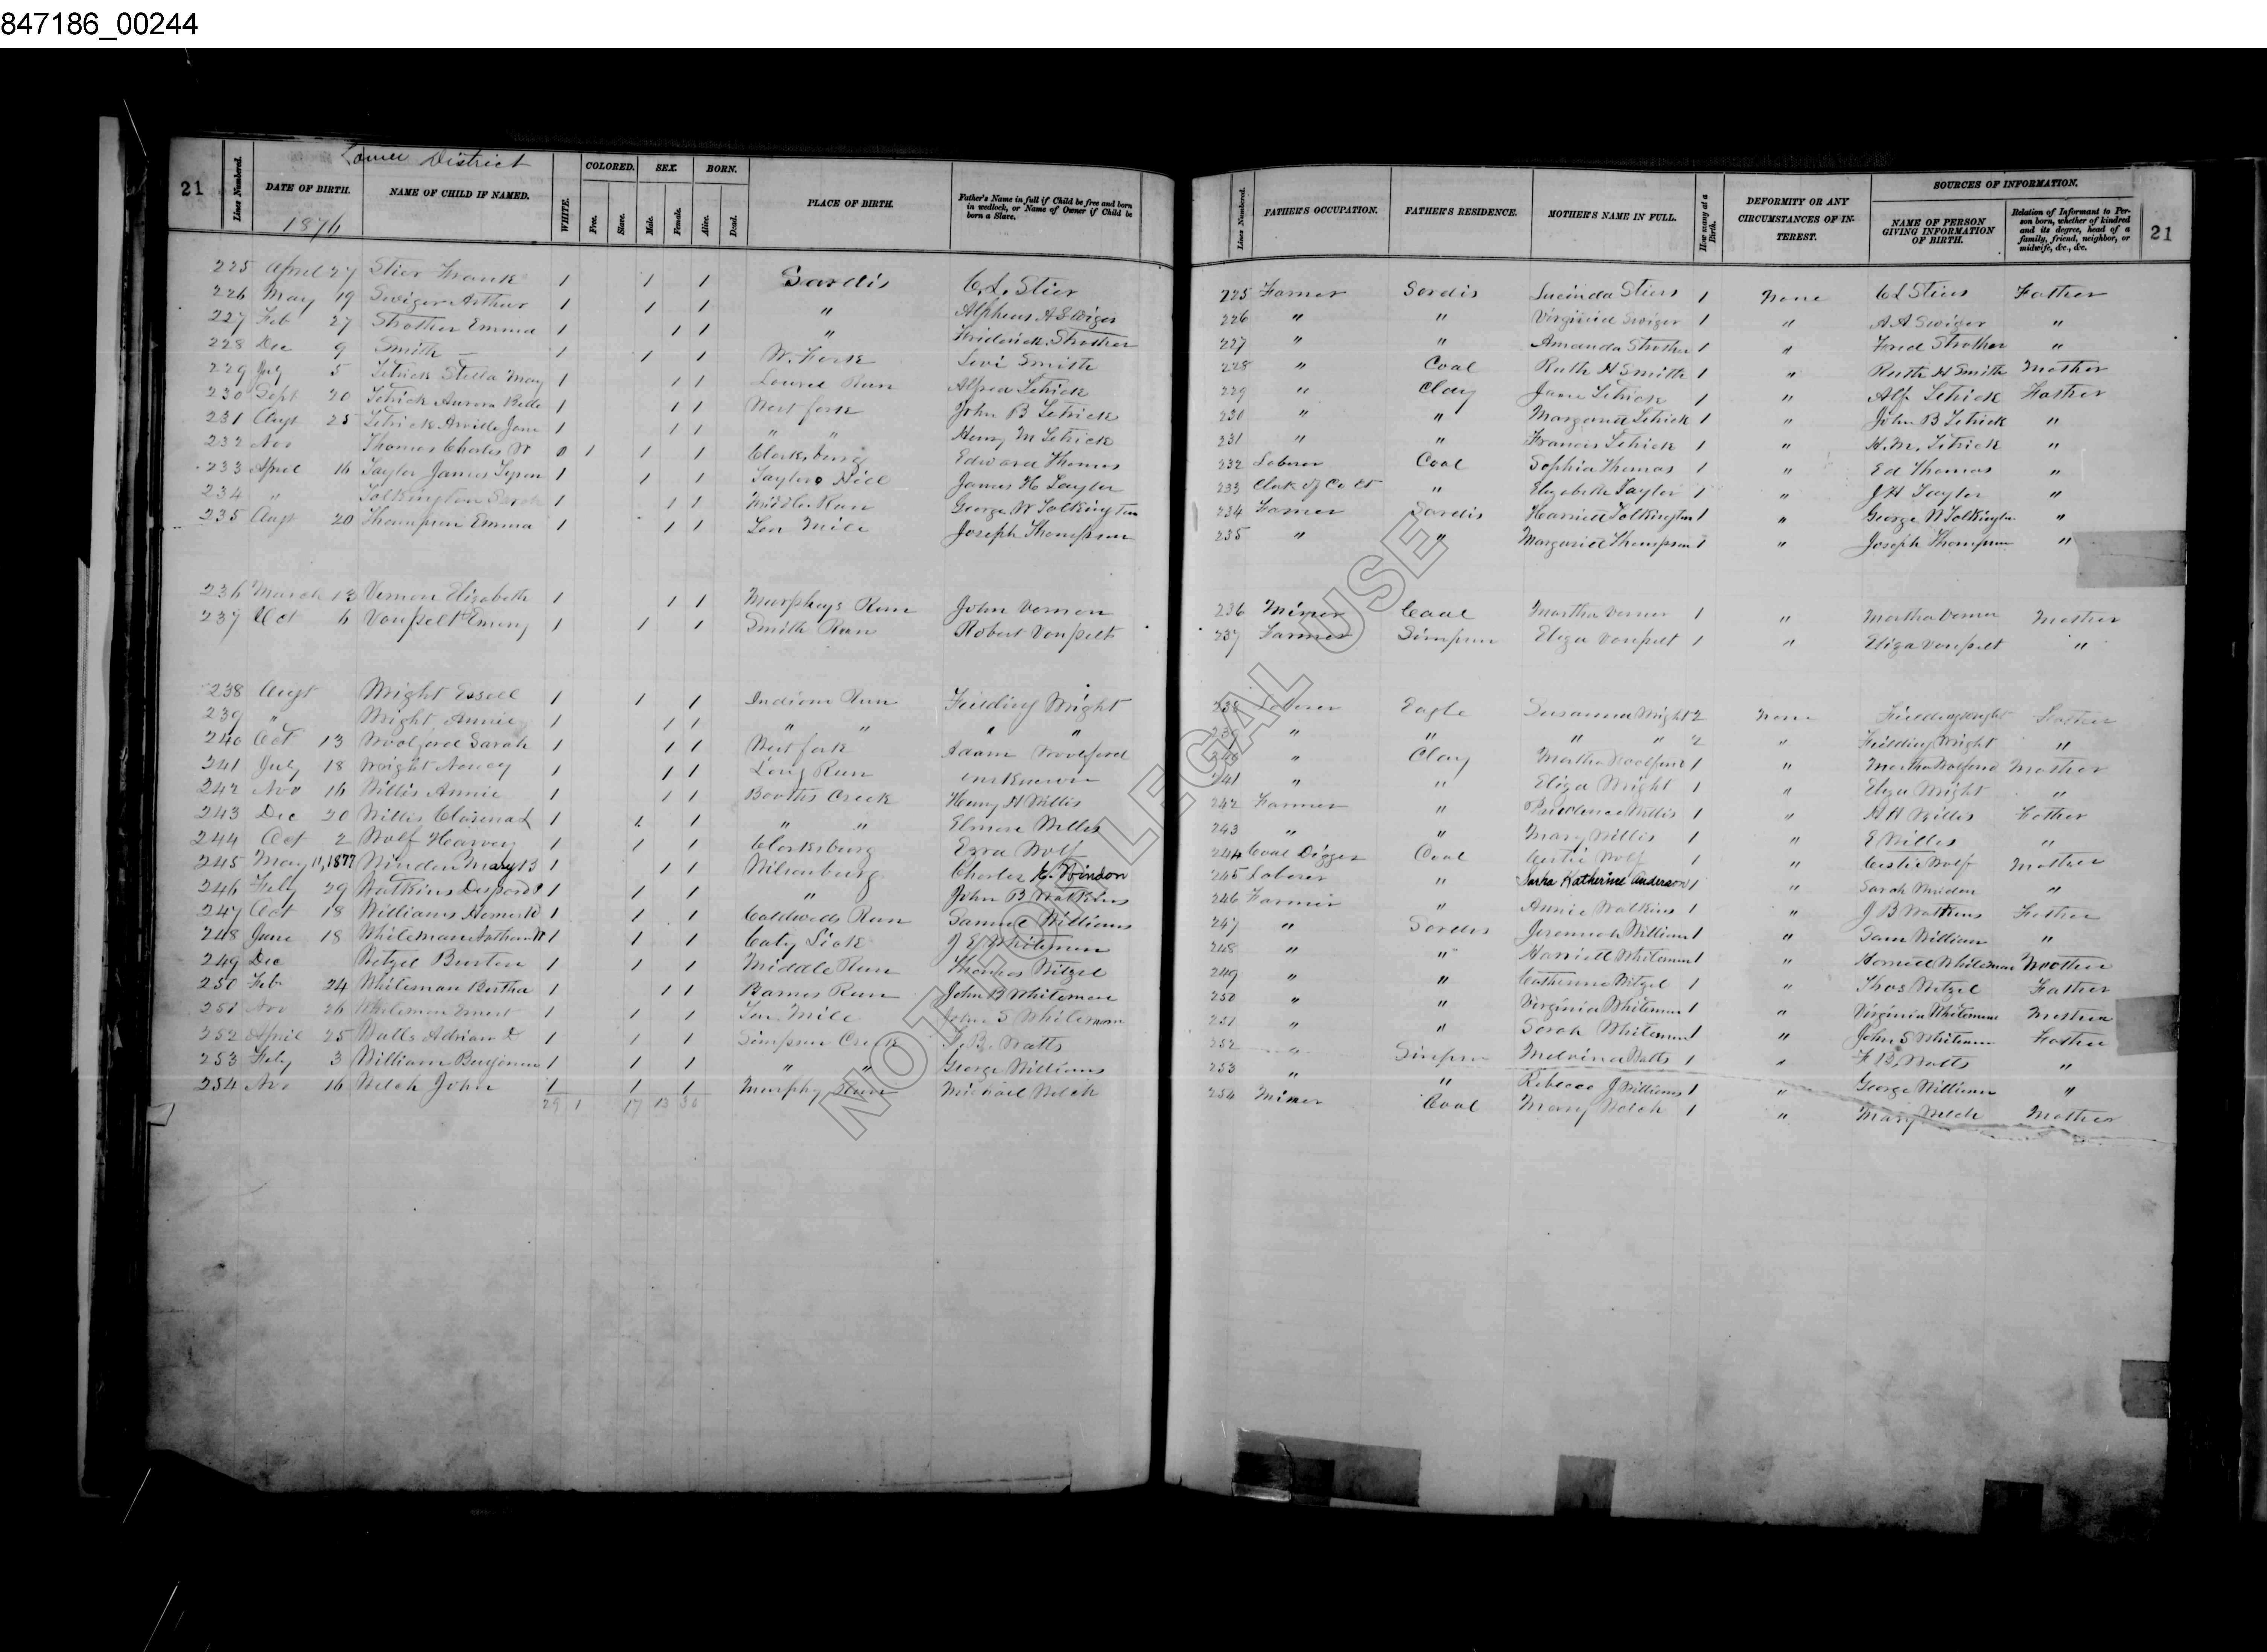 847186_00244
Lower District
21 Lines Numbered. DATE OF BIRTH. NAME OF CHILD IF NAMED. WHITE. COLORED. Free. Slave. SEX. Male. Female. BORN. Alive. Dead. PLACE OF BIRTH. Father's Name in full if Child be free and born in wedlock, or Name of Owner if Child be born a Slave. Lines Numbered. FATHER'S OCCUPATION. FATHER'S RESIDENCE. MOTHER'S NAME IN FULL. How many at a Birth. DEFORMITY OR ANY CIRCUMSTANCES OF INTEREST. SOURCES OF INFORMATION. NAME OF PERSON GIVING INFORMATION OF BIRTH. Relation of Informant to Person born, whether of kindred and its degree, head of a family, friend, neighbor, or midwife, &c., &c. 21
1876
225 April 27 Stier Frank 1 1 1 Sardis C. L. Stier 225 Farmer Sardis Lucinda Stiers 1 None C L Stiers Father
226 May 19 Swiger Arthur 1 1 1 " Alpheus A Swiger 226 " " Virginia Swiger 1 " A A Swiger "
227 Feb 27 Strother Emma 1 1 1 " Fridrick Strother 227 " " Amanda Strother 1 " Fred Strother "
228 Dec 9 Smith — 1 1 1 W. Fork Levi Smith 228 " Coal Ruth H Smith 1 " Ruth H Smith Mother
229 5 Stella May 1 1 1 Laurel Run 229 " Clay Jane 1 " Father
230 Sept 20 Aurora Belle 1 1 1 West fork John B 230 " " Margaret 1 " John B "
231 Augt 25 Jane 1 1 1 " " Henry M 231 " " Francis 1 " H. M. "
232 Nov Thomas Charles W 0 1 1 1 Clarksburg Edward Thomas 232 Laborer Coal Sophia Thomas 1 " Ed Thomas "
233 April 16 Taylor James 1 1 1 Taylors Hill James H Taylor 233 Clerk of Co Ct " Elizabeth Taylor 1 " J H Taylor "
234 " Tolkington Sarah 1 1 1 Middle Run George W Tolkington 234 Farmer Sardis Harriett Tolkington 1 " George W Tolkington "
235 Augt 20 Thompson Emma 1 1 1 Ten Mile Joseph Thompson 235 " " Margaret Thompson 1 " Joseph Thompson "
236 March 13 Vernon Elizabeth 1 1 1 Murpheys Run John Vernon 236 Miner Coal Martha Verner 1 " Martha Verner Mother
237 Oct 6 Vanpelt Emery 1 1 1 Smith Run Robert Vanpelt 237 Farmer Simpson Eliza Vanpelt 1 " Eliza Vanpelt "
238 Augt Wright 1 1 1 Indian Run Fielding Wright 238 Laborer Eagle Susanna Wright 2 None Fielding Wright Father
239 " Wright Annie 1 1 1 " " " " 239 " " " " 2 " Fielding Wright "
240 Oct 13 Woolford Sarah 1 1 1 West fork Adam Woolford 240 " Clay Martha Woolford 1 " Martha Wolford Mother
241 July 18 Wright Nancy 1 1 1 Long Run unknown 241 " " Eliza Wright 1 " Eliza Wright "
242 Nov 16 Willis Annie 1 1 1 Booths Creek Henry H Willis 242 Farmer " Prudence Willis 1 " H H Willis Father
243 Dec 20 Willis 1 1 1 " " Elmore Willis 243 " " Mary Willis 1 " E Willis "
244 Oct 2 Wolf Harvey 1 1 1 Clarksburg Ezra Wolf 244 Coal Digger Coal Wolf 1 " Wolf Mother
245 May 11, 1877 Windon Mary B 1 1 1 Wilsonburg Charles E. Windon 245 Laborer " Sarha Katherine Anderson 1 " Sarah Windon "
246 Feby 29 Watkins 1 1 1 " John B Watkins 246 Farmer " Annie Watkins 1 " J B Watkins Father
247 Oct 18 Williams Homer W 1 1 1 Coldwods Run Samuel Williams 247 " Sardis Jerennah Williams 1 " Sam William "
248 June 18 Whiteman Nathan W 1 1 1 Caty Lick J E Whiteman 248 " " Harriett Whiteman 1 " Harriett Whiteman Mother
249 Dec Wetzel Burton 1 1 1 Middle Run Thomas Witzel 249 " " Catherine Witzel 1 " Thos Wetzel Father
250 Feb 24 Whiteman Bertha 1 1 1 Barnes Run John B Whiteman 250 " " Virginia Whiteman 1 " Virginia Whiteman Mother
251 Nov 26 Whiteman Ernest 1 1 1 Ten Mile John S Whiteman 251 " " Sarah Whiteman 1 " John S Whiteman Father
252 April 25 Watts Adrian D 1 1 1 Simpson Creek F. B. Watts 252 " Simpson Melvina Watts 1 " F. B. Watts "
253 Feby 3 William Benjamin 1 1 1 " " George Williams 253 " " Rebecca J Williams 1 " George William "
254 Nov 16 Welch John 1 1 1 Murphy Run Michael Welch 254 Miner Coal Mary Welch 1 " Mary Welch Mother
29 1 17 13 30
NOT FOR LEGAL USE